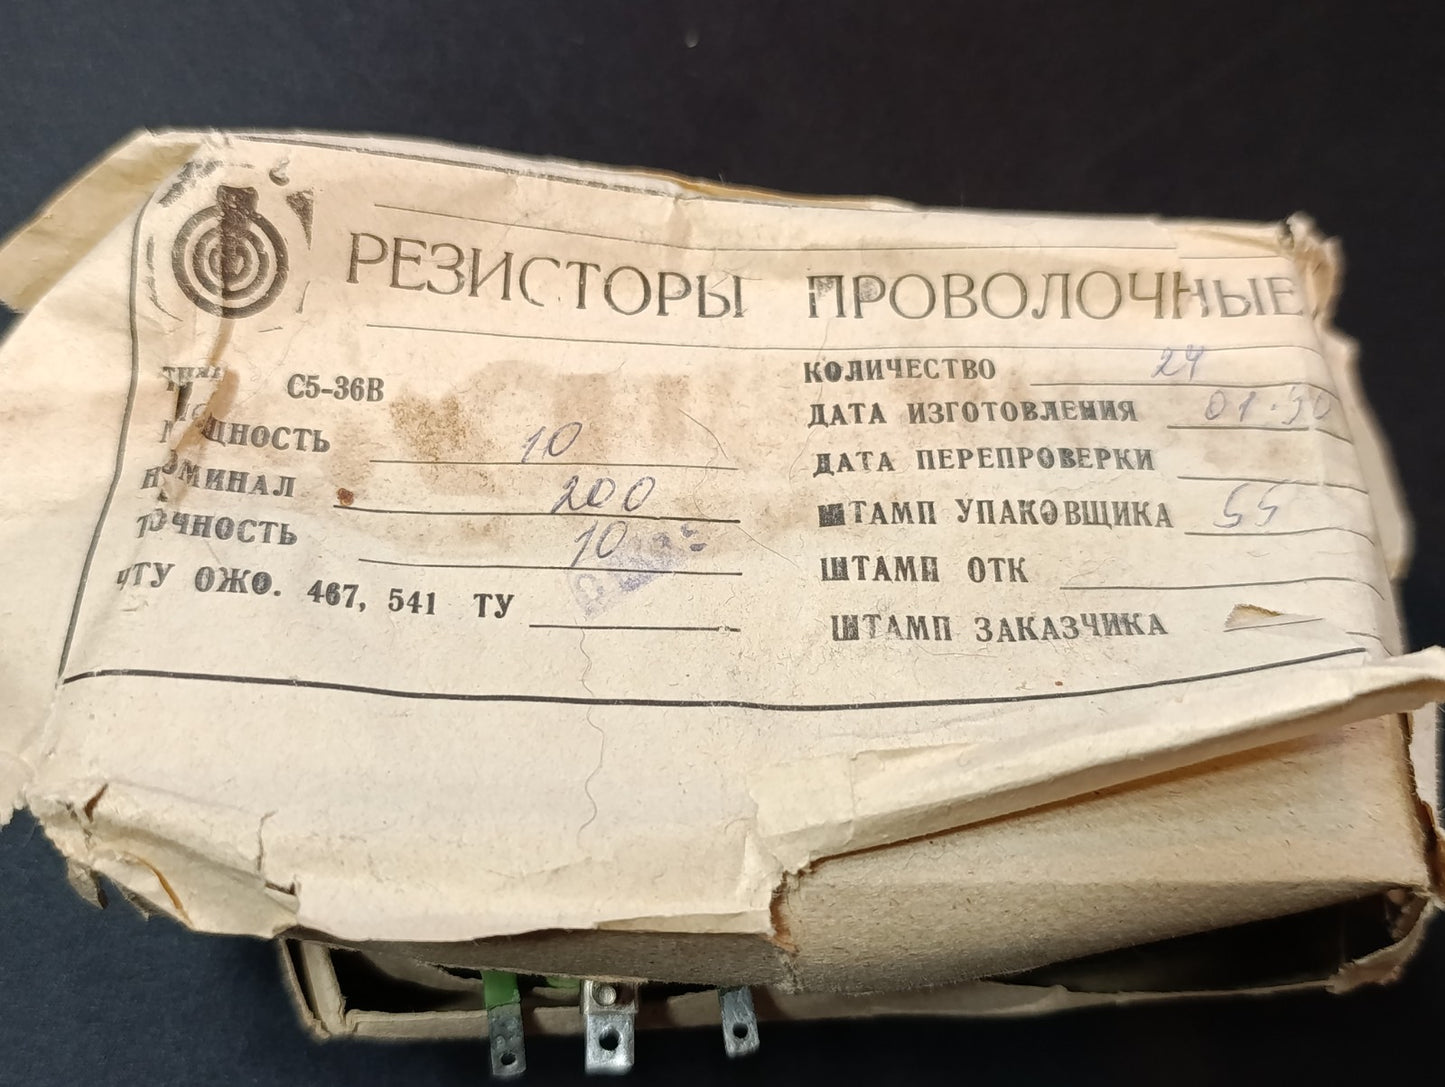 РЕЗИСТОРЫ ПРОВОЛОЧНЫЕ
ТИП С5-36В
МОЩНОСТЬ 10
НОМИНАЛ 200
ТОЧНОСТЬ 10
ЧТУ ОЖО. 467, 541 ТУ
КОЛИЧЕСТВО 24
ДАТА ИЗГОТОВЛЕНИЯ 01.90
ДАТА ПЕРЕПРОВЕРКИ
ШТАМП УПАКОВЩИКА 55
ШТАМП ОТК
ШТАМП ЗАКАЗЧИКА